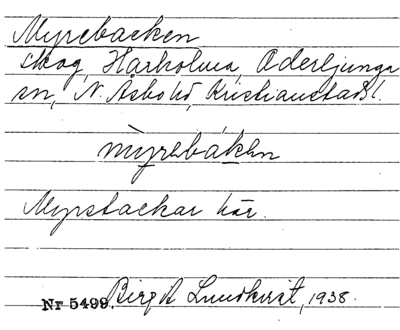 Myrebacken
skog, Harholma, Oderljunga
sn, N. Åsbo hd, Kristianstads l.
mỳrebákən
Myrstackar här.
Nr 5499. Birgit Lundkvist, 1938.